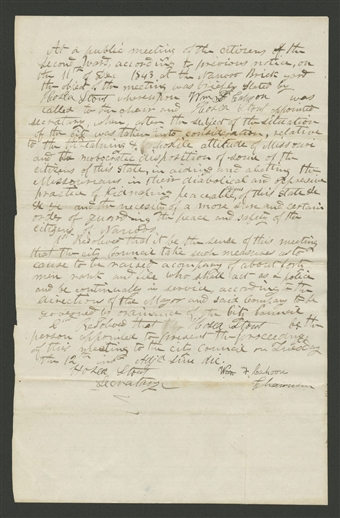 At a public meeting of the citizens of the
Second Ward, according to previous notice, on
the 11th of Dec 1843, at the Nauvoo Brick yard
the object of the meeting was briefly stated by
Hosea Stout whereupon Wm F. Cahoon was
called to the chair and Hosea Stout appointed
secretary, when after the subject of the situation
of the city was taken into consideration, relative
to the threatening & hostile attitude of Missouri
and the mobocratic disposition of some of the
citizens of this State, in aiding and abetting the
Missourians in their diabolical and oppressive
practice of kidnapping peaceable of this State &c
&c &c and the necessity of a more sure and certain
order of guarding the peace and safety of the
citizens of Nauvoo
1st Resolved that it be the sense of this meeting
that the city council take such measures as to
cause to be raised a company of about forty
men rank and file who shall act as a police
and be continually in service according to the
directions of the Mayor and said Company to be
by ordinance of the City Council
2nd resolved that Hosea Stout be the
person appointed to present the proceedings
of this meeting to the City Council on Tuesday
the 12th inst adj. sine die.
Hosea Stout Wm F. Cahoon
Secretary Chairman